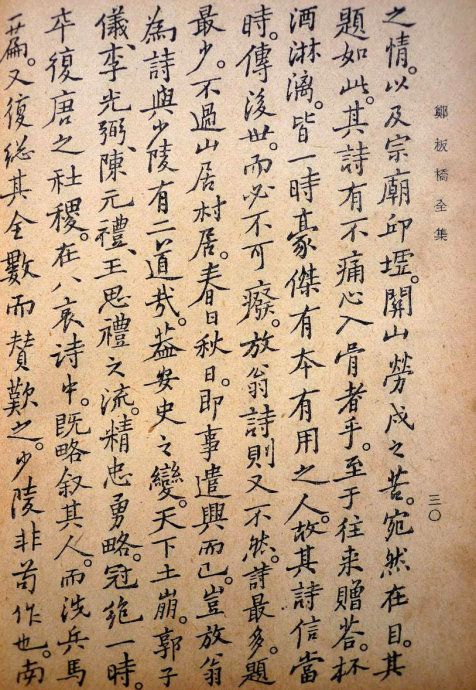 鄭板橋全集
三〇
之情。以及宗廟邱墟。關山勞戍之苦。宛然在目。其
題如此。其詩有不痛心入骨者乎。至于往来贈荅。杯
酒淋漓。皆一時豪傑有本有用之人。故其詩信當
時。傳後世。而必不可癈。放翁詩則又不然。詩最多。題
最少。不過山居村居。春日秋日。即事遣興而已。豈放翁
為詩與少陵有二道哉。葢安史之變。天下土崩。郭子
儀、李光弼、陳元禮、王思禮之流。精忠勇略。冠絶一時。
卒復唐之社稷。在八哀诗中。既略叙其人。而洗兵馬
一篇。又復総其全數而賛歎之。少陵非苟作也。南